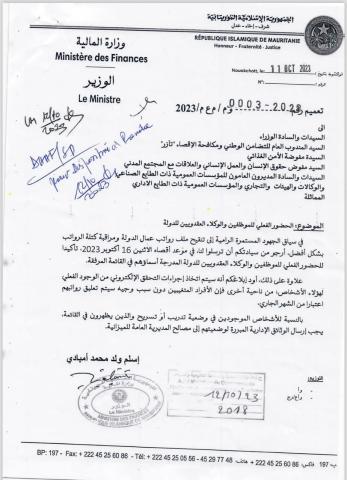 الجمهورية الإسلامية الموريتانية
شرف - إخاء - عدل
RÉPUBLIQUE ISLAMIQUE DE MAURITANIE
Honneur - Fraternité - Justice
وزارة المالية
Ministère des Finances
الوزير
Le Ministre
Nouakchott, le 11 OCT 2023
تعميم رقم 0003-2023/م م/و م
إلى
السيدات والسادة الوزراء
السيد المندوب العام للتضامن الوطني ومكافحة الإقصاء "تآزر"
السيدة مفوضة الأمن الغذائي
السيد مفوض حقوق الإنسان والعمل الإنساني والعلاقات مع المجتمع المدني
السيدات والسادة المديرون العامون للمؤسسات العمومية ذات الطابع الصناعي
والتجاري والوكالات والهيئات والمؤسسات العمومية ذات الطابع الإداري
المماثلة
الموضوع: الحضور الفعلي للموظفين والوكلاء العقدويين للدولة
في سياق الجهود المستمرة الرامية إلى تنقيح ملف رواتب عمال الدولة ومراقبة كتلة الرواتب
بشكل أفضل، أرجو من سيادتكم أن ترسلوا لنا، في موعد أقصاه الاثنين 16 أكتوبر 2023، تأكيدا
للحضور الفعلي للموظفين والوكلاء العقدويين للدولة المدرجة أسماؤهم في القائمة المرفقة.
علاوة على ذلك، أود إبلاغكم أنه سيتم اتخاذ إجراءات التحقق الإلكتروني من الوجود الفعلي
لهؤلاء الأشخاص، من ناحية أخرى فإن الأفراد المتغيبين دون سبب وجيه سيتم تعليق رواتبهم
اعتبارا من الشهر الجاري.
بالنسبة للأشخاص الموجودين في وضعية تدريب أو تسريح والذين يظهرون في القائمة،
يجب إرسال الوثائق الإدارية المبررة لوضعيتهم إلى مصالح المديرية العامة للميزانية.
إسلم ولد محمد أمبادي
التوزيع:
12/10/23
2018
Le Ministre
BP: 197 - Fax: + 222 45 25 60 86 - Tél: + 222 45 25 05 56 - 45 29 77 48 هاتف: + 222 45 25 60 86 فاكس: ب.ص 197